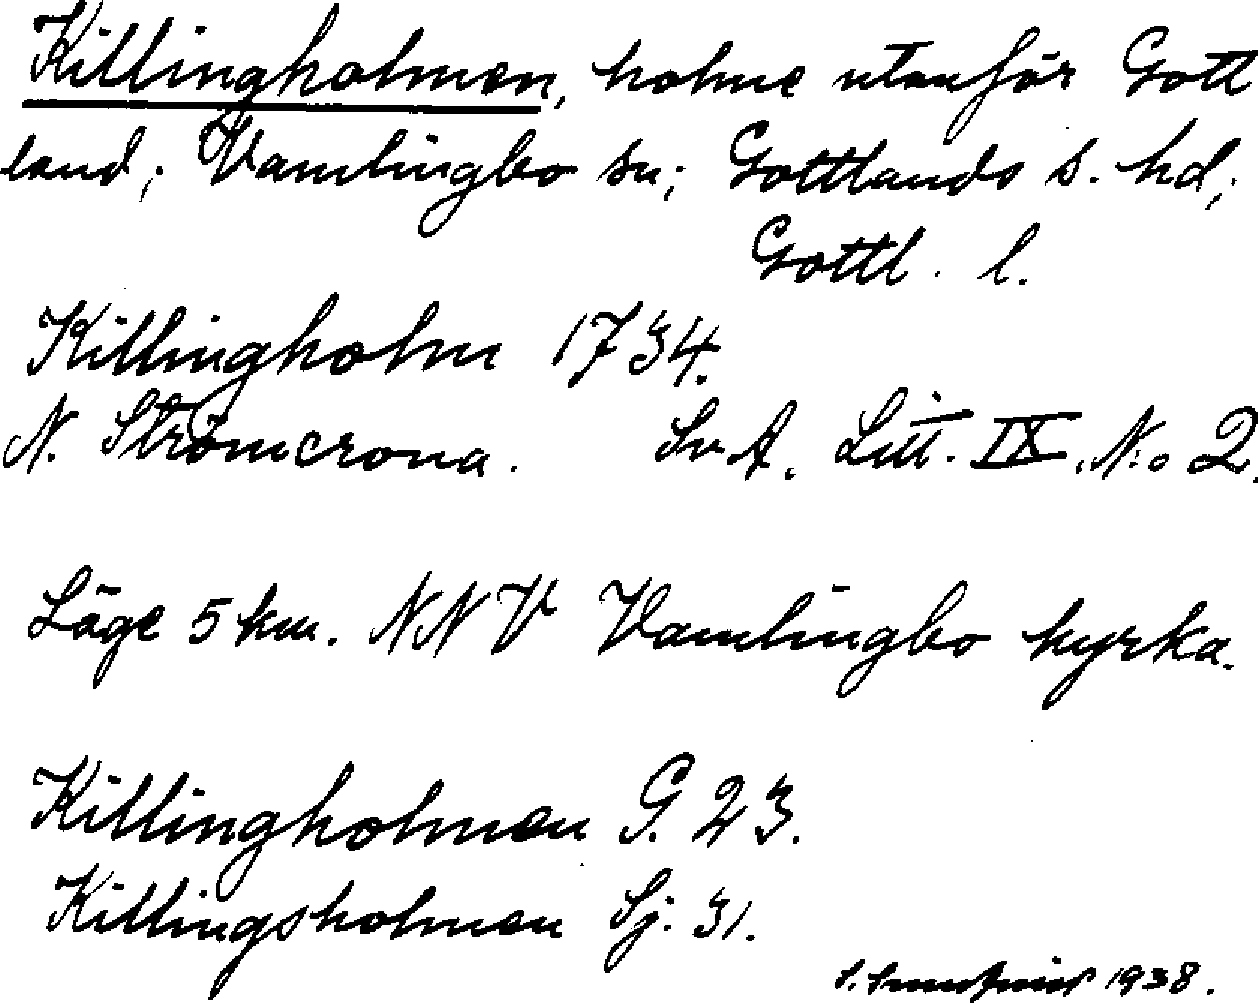 Killingholmen, holme utanför Gott
land; Vamlingbo sn; Gottlands s. hd;
Gottl. l.
Killingholm 1734.
N. Strömcrona. Sv. A. Litt. IX. No 2.
Läge 5 km. NNV Vamlingbo kyrka.
Killingholmen G. 23.
Killingsholmen Sj. 31.
1938.